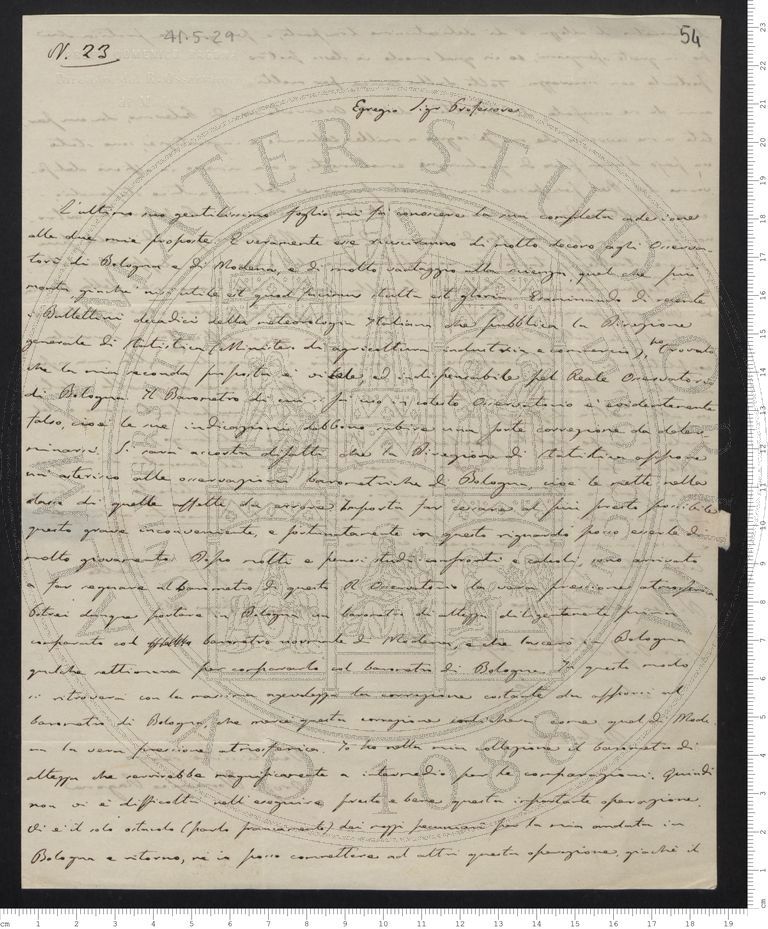 41.5.29
54
N. 23
Egregio Sigr Professore
L'ultimo suo gentilissimo foglio mi fa conoscere la sua completa adesione
alle due mie proposte. E veramente esse riusciranno di molto decoro agli Osserva-
torî di Bologna e di Modena, e di molto vantaggio alla scienza, quel che più
monta giacchè nisi utile est quod facimus stulta est gloria. Esaminando di recente
i Bullettini decadici della meteorologia Italiana che pubblica la Direzione
generale di Statistica (Minister. di agricoltura industria e commercio), ho trovato
che la mia seconda proposta è utile, ed indispensabile pel Reale Osservatorio
di Bologna. Il Barometro di cui si fa uso in codesto Osservatorio è evidentemente
falso, cioè le sue indicazioni debbono subire una forte correzione da deter-
minarsi. Si sarà accorta difatti che la Direzione di Statistica appone
un'asterisco alle osservazioni barometriche di Bologna, cioè le mette nella
classe di quelle affette da errore. Importa far cessare al più presto possibile
questo grave inconveniente, e fortunatamente io a questo riguardo posso esserle di
molto giovamento. Dopo molti e penosi studi confronti e calcoli, sono arrivato
a far segnare al barometro di questo R. Osservatorio la vera pressione atmosferica.
Potrei dunque portare in Bologna un barometro di altezza diligentemente prima
comparato col barometro normale di Modena, e che lascerei in Bologna
qualche settimana per compararlo col barometro di Bologna. In questo modo
si ritroverà con la massima agevolezza la correzione costante da apporsi al
barometro di Bologna, che mercè questa correzione indicherà come quel di Mode-
na la vera pressione atmosferica. Io ho nella mia collezione il barometro di
altezza che servirebbe magnificamente a intermedio per le comparazioni. Quindi
non vi è difficoltà nell'eseguire presto e bene questa importante operazione.
Vi è il solo ostacolo (parlo francamente) dei mezzi pecuniarî per la mia andata in
Bologna e ritorno, nè io posso commettere ad altri questa operazione, giacchè il